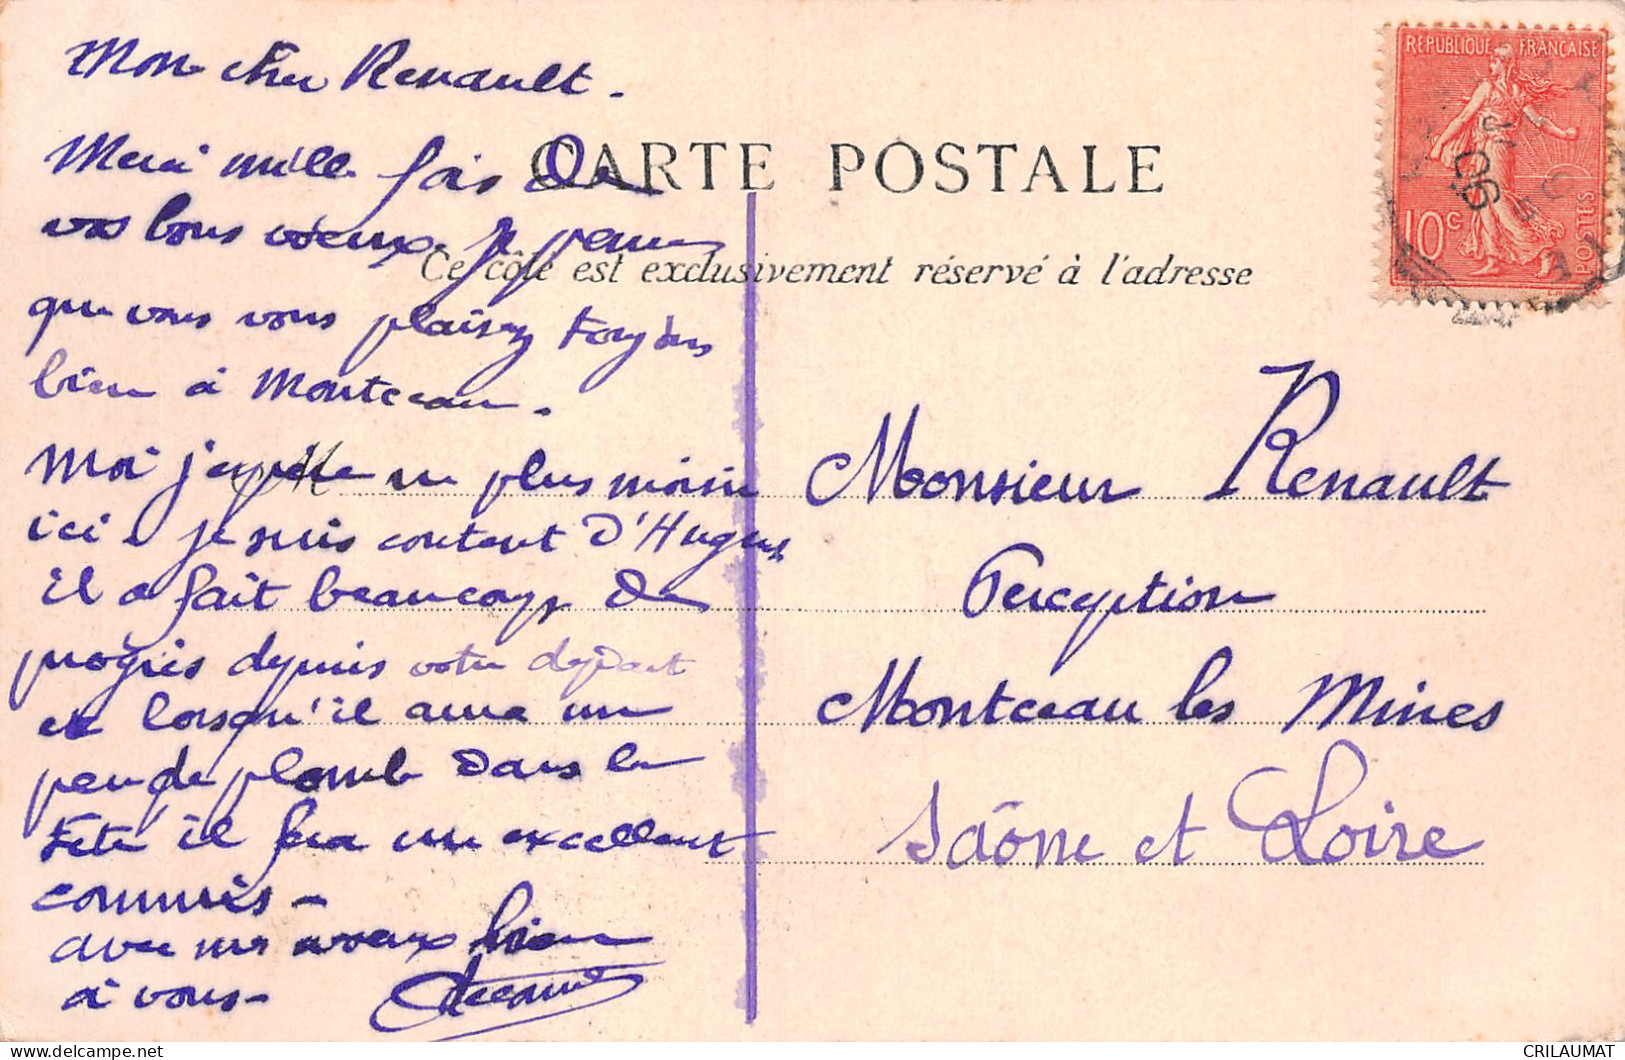 Mon cher Renault.
Merci mille fois de
vos bons voeux. Je pense
que vous vous plaisez toujours
bien à Montceau.
Moi j'appelle un plus
ici je suis content d'Hugues
il a fait beaucoup de
progrès depuis votre départ
et lorsqu'il aura un
peu de plomb dans la
tête il fera un excellent
commis -
avec mes voeux bien
à vous -
CARTE POSTALE
Ce côté est exclusivement réservé à l'adresse
RÉPUBLIQUE FRANÇAISE
10c
POSTES
06
Monsieur Renault
Perception
Montceau les Mines
Saône et Loire
CRILAUMAT